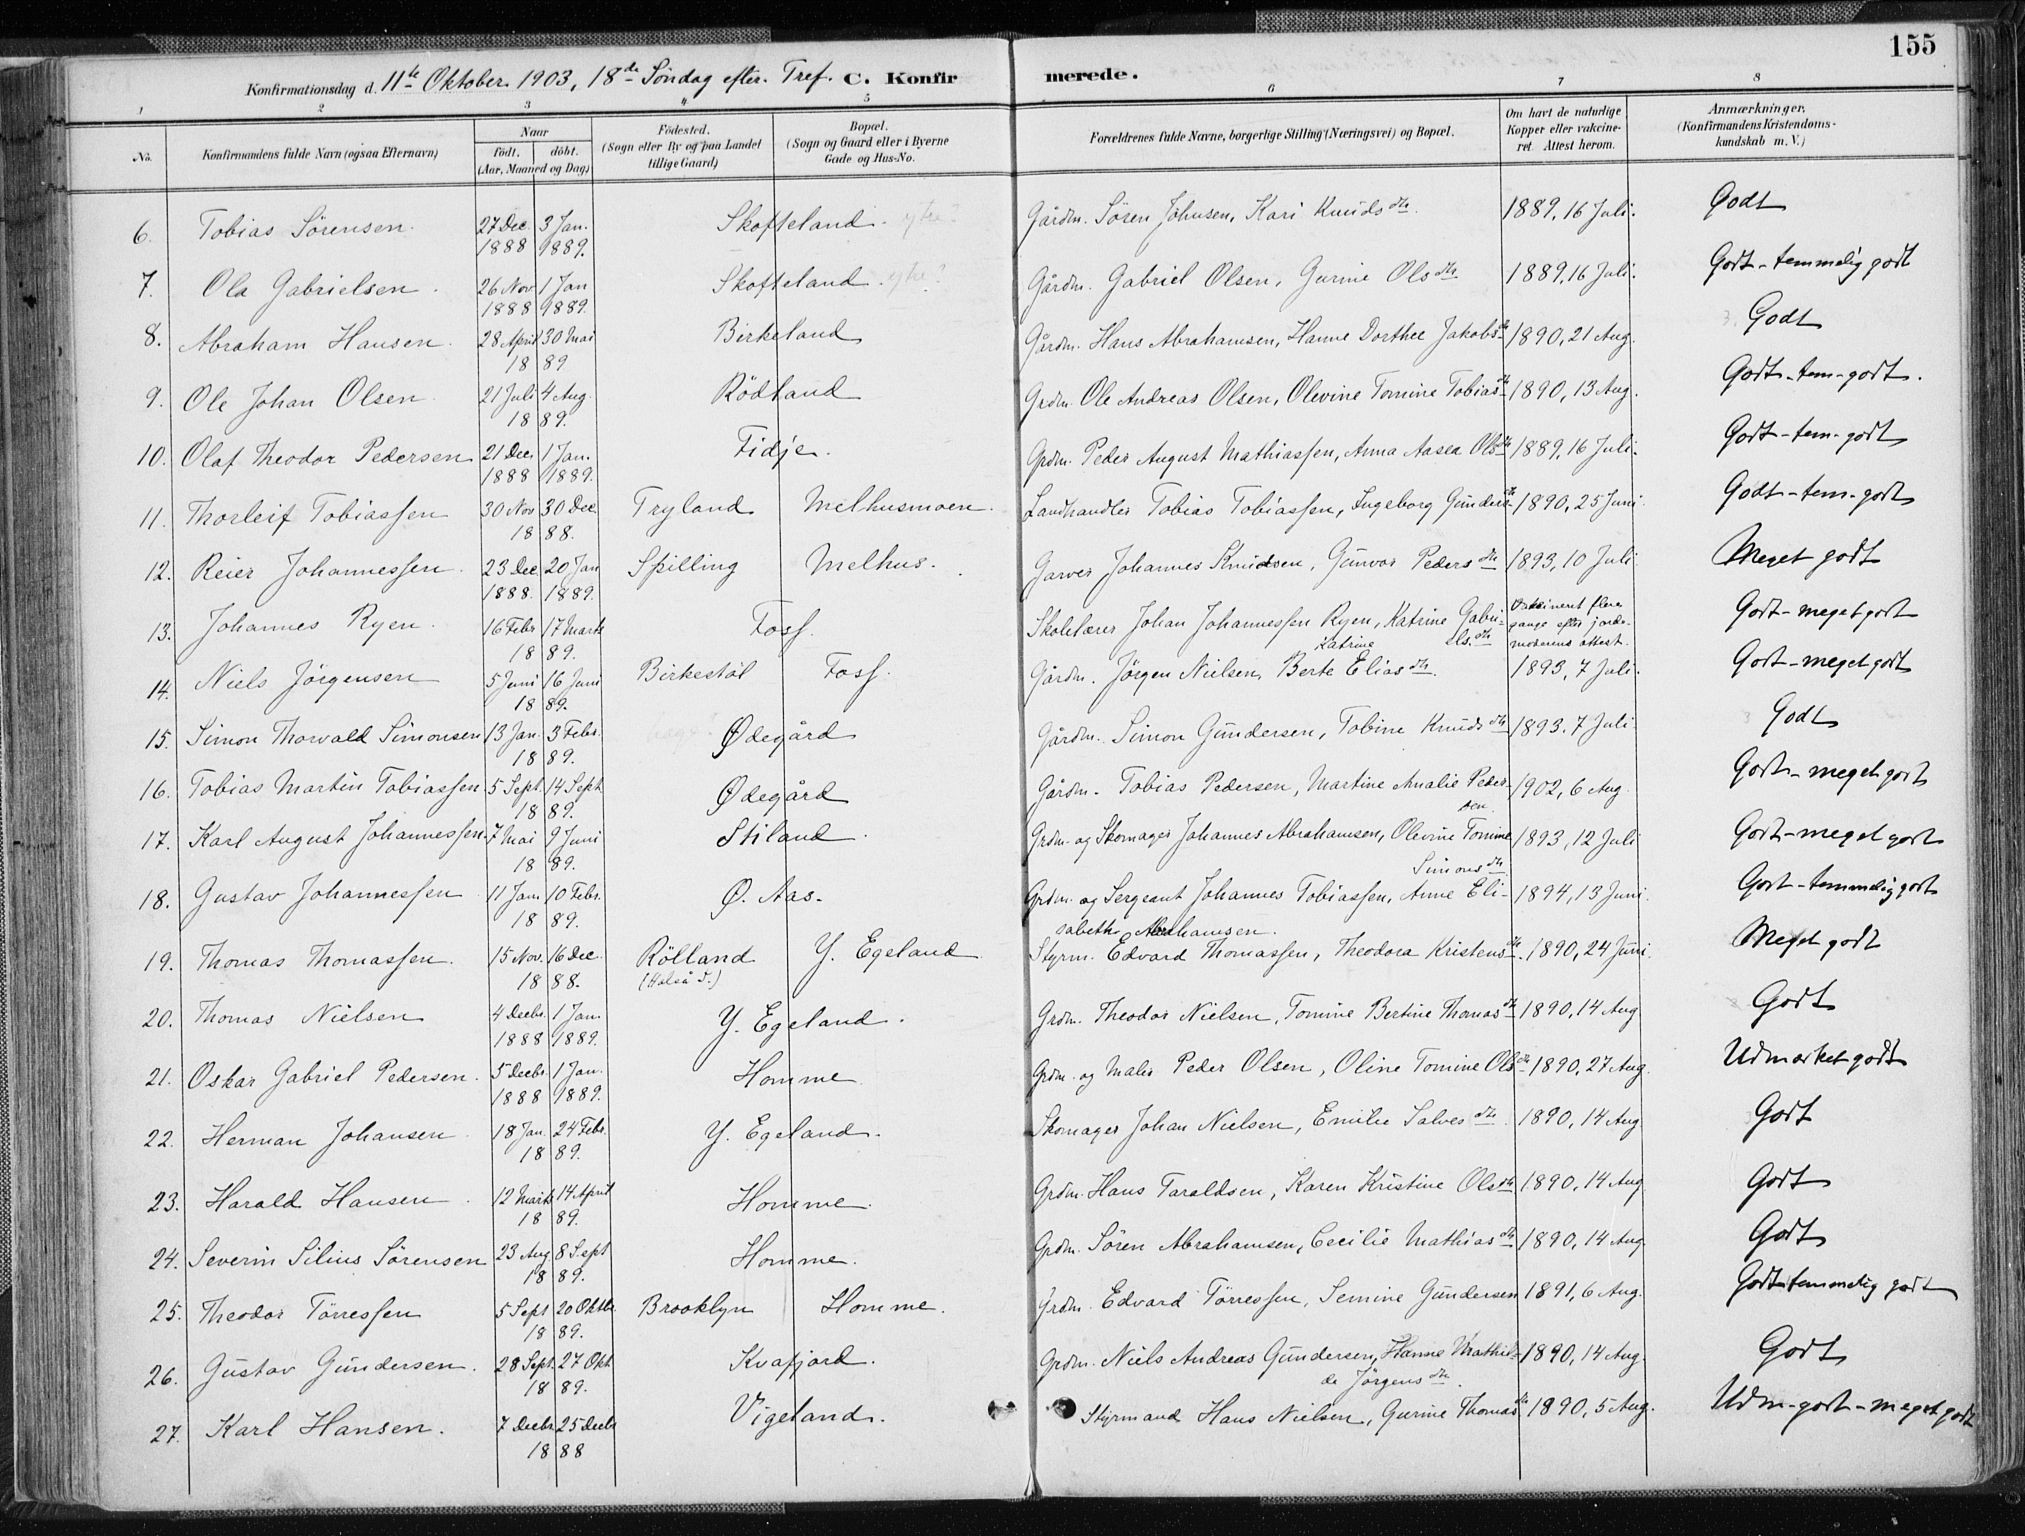 155
Konfirmationsdag d. 11te Oktober 1903, 18de Søndag efter Tref. C. Konfirmerede.
1 2 3 4 5 6 7 8
No. Konfirmandens fulde Navn (ogsaa Efternavn) Naar födt. döbt. (Aar, Maaned og Dag) Födested. (Sogn eller By og paa Landet tillige Gaard) Bopæl. (Sogn og Gaard eller i Byerne Gade og Hus-No. Forældrenes fulde Navne, borgerlige Stilling (Næringsvei) og Bopæl. Om havt de naturlige Kopper eller vakcineret Attest herom. Anmærkninger. (Konfirmandens Kristendomskundskab m. V.)
6. Tobias Sørensen. 27 Dec. 1888 3 Jan. 1889. Skofteland. ytre? Gårdm. Søren Johnsen, Kari Knudsdtr. 1889, 16 Juli. Godt
7. Ola Gabrielsen. 26 Nov 1888 1 Jan 1889. Skofteland. ytre? Gårdm. Gabriel Olsen, Gurine Olsdtr 1889, 16 Juli. Godt-temmelig godt
8. Abraham Hansen. 28 April 30 Mai 1889 Birkeland Gårdm. Hans Abrahamsen, Hanne Dorthee Jakobsdtr 1890, 21 Aug. Godt
9. Ole Johan Olsen. 21 Juli 4 Aug. 1889. Rödland Grdm. Ole Andreas Olsen, Olevine Tomine Tobiasdtr 1890, 13 Aug. Godt-tem-godt.
10. Olaf Theodor Pedersen 21 Dec. 1888 1 Jan. 1889. Fidje. Grdm. Peder August Mathiassen, Anna Aasea Olsdtr 1889, 16 Juli. Godt-tem-godt
11. Thorleif Tobiassen 30 Nov 30 Dec 1888. Tryland Melhusmoen. Landhandler Tobias Tobiassen, Ingeborg Gundersdtr 1890, 25 Juni. Godt-tem-godt
12. Reier Johannessen. 23 Dec. 1888. 20 Jan 1889. Spilling Melhus. Garver Johannes Knudsen, Gunvor Pedersdtr 1893, 10 Juli Meget godt
13. Johannes Ryen. 16 Febr 17 Marts 1889. Foss. Skolelærer Johan Johannessen Ryen, Katrine Gabrielsdtr Vakcineret flere gange efter jordemoderens attest. Godt-meget godt
14. Niels Jørgensen 5 Juni 16 Juni 1889. Birkestöl Foss. Gårdm. Jørgen Nielsen, Berte Katrine Eliasdtr. 1893, 7 Juli. Godt-meget godt
15. Simon Thorvald Simonsen 13 Jan. 3 Febr. 1889. Ødegård Gårdm. Simon Gundersen, Tobine Knudsdtr 1893. 7 Juli Godt
16. Tobias Martin Tobiassen 5 Sept. 14 Sept 1889. Ødegård Gårdm. Tobias Pedersen, Martine Amalie Pedersen. 1902, 6 Aug. Godt-meget godt
17. Karl August Johannessen. 7 Mai 9 Juni 1889. Stiland. Grdm. og Skomager Johannes Abrahamsen, Olevine Tomine Simonsdtr 1893, 12 Juli Godt-meget godt
18. Gustav Johannessen 11 Jan. 10 Febr. 1889. Ø. Aas. Grdm. og Sergeant Johannes Tobiassen, Anne Elisabeth Abrahamsen. 1894, 13 Juni. Godt-temmelig godt
19. Thomas Thomassen. 15 Nov. 16 Dec. 1888. Rölland (Halså S.) Y. Egeland Styrm. Edvard Thomassen, Theodora Kristensdtr. 1890, 24 Juni. Meget godt
20. Thomas Nielsen 4 Decbr. 1888 1 Jan. 1889. Y. Egeland. Grdm. Theodor Nielsen, Tomine Bertine Thomasdtr 1890, 14 Aug Godt
21. Oskar Gabriel Pedersen. 5 Decbr. 1888 1 Jan. 1889. Homme Grdm. og Maler Peder Olsen, Oline Tomine Olsdtr 1890, 27 Aug. Udmærket godt
22. Herman Johansen. 18 Jan. 24 Febr. 1889. Y. Egeland. Skomager Johan Nielsen, Emilie Salvesdtr. 1890, 14 Aug Godt
23. Harald Hansen. 12 Marts 14 April 1889. Homme. Grdm. Hans Taraldsen, Karen Kristine Olsdtr 1890, 14 Aug. Godt
24. Severin Silius Sørensen 23 Aug 8 Sept 1889. Homme. Grdm. Søren Abrahamsen, Cecilie Mathiasdtr 1890, 14 Aug. Godt
25. Theodor Tørressen 5 Sept 20 Oktbr. 1889. Brooklyn Homme. Grdm. Edvard Tørressen, Semine Gundersen 1891, 6 Aug. Godt temmelig godt
26. Gustav Gundersen. 28 Sept. 27 Okt. 1889. Kvafjord. Grdm. Niels Andreas Gundersen, Hanne Mathilde Jørgensdtr. 1890, 14 Aug. Godt
27. Karl Hansen. 7 Decbr. 25 Decbr 1888 Vigeland. Styrmand Hans Nielsen, Gurine Thomasdtr 1890, 5 Aug. Udm-godt-meget godt